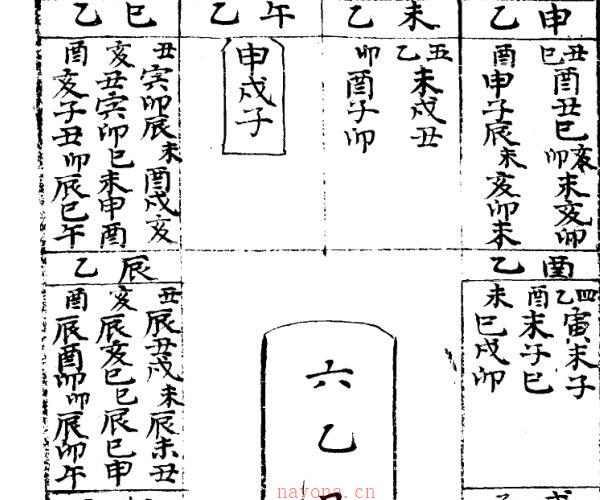 乙巳
乙午
乙未
乙申
丑寅卯辰未酉戌亥
亥丑寅卯巳未申酉
酉亥子丑卯辰巳午
申戌子
五乙未戌丑
卯酉子卯
丑巳酉丑巳亥卯未亥卯
酉申子辰未亥卯未
乙辰
乙酉
丑辰丑戌未辰未丑
亥辰亥巳巳辰巳申
酉辰酉卯卯辰卯午
四乙寅未子
酉未子巳
未巳戌卯
六乙
nayona.cn